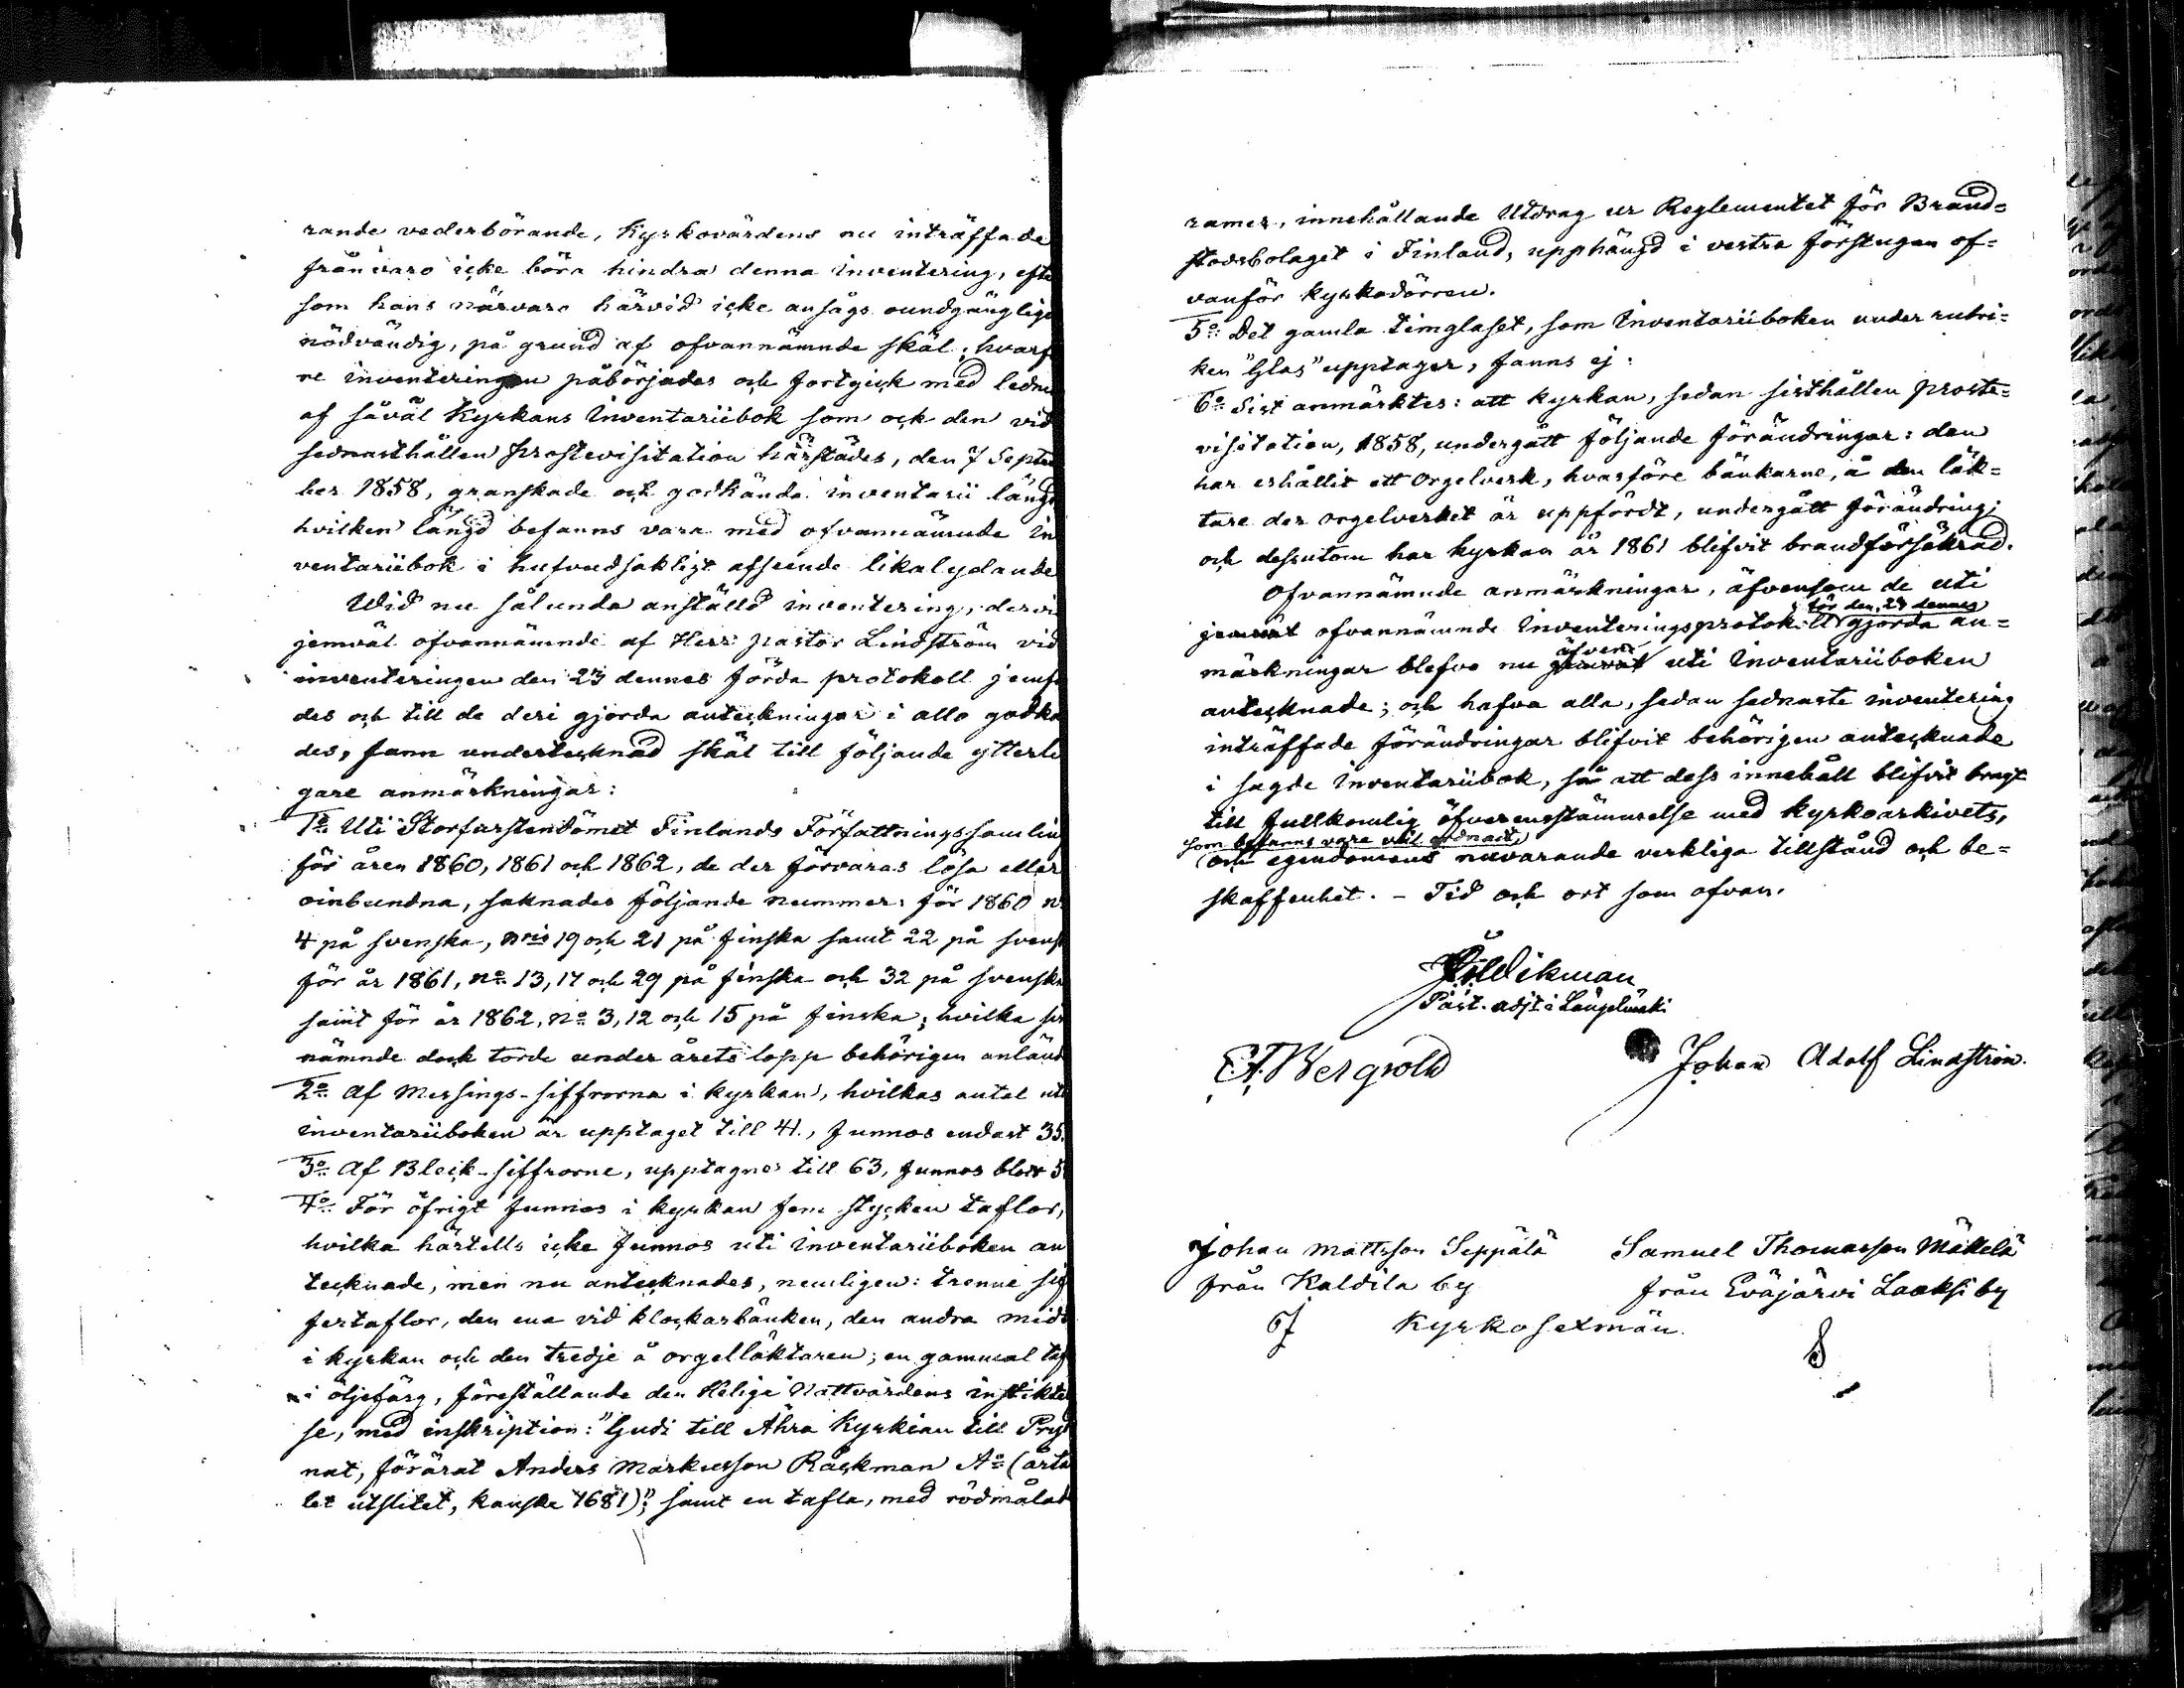 rande vederbörande, Kyrkovärdens nu inträffade
frånvaro icke böra hindra denna inventering, efte
som hans närvaro härvid icke ansågs oundgänglige
nödvändig, på grund af ofvannämnde skäl; hvarf
re inventeringen påbörjades och fortgick med ledni
af såväl Kyrkans Inventariibok som ock den vid
sednasthållen Prostevisitation härstädes, den 7 Septem
ber 1858, granskade och godkända inventarii längd
hvilken längd befanns vara med ofvannämnde In
ventariibok i hufvudsakligt afseende likalydande
Wid nu sålunda anställd inventering, dervi
jemväl ofvannämnde af Herr Pastor Lindström vid
inventeringen den 23 dennes förda protokoll jemfö
des och till de deri gjorda anteckningar i allo godkä
des, fann undertecknad skäl till följande ytterli
gare anmärkningar:
1o Uti Storfurstendömet Finlands Författningssamling
för åren 1860, 1861 och 1862, de der förvaras lösa eller
oinbundna, saknades följande nummer: för 1860 n
4 på svenska, nris 19 och 21 på finska samt 22 på svensk
för år 1861, no 13, 17 och 29 på finska och 32 på svenska
samt för år 1862, no 3, 12 och 15 på finska; hvilka sist
nämnde dock torde under årets lopp behörigen anländ
2o Af Messings-siffrorna i kyrkan, hvilkas antal uti
inventariiboken är upptaget till 41, funnos endast 35.
3o Af Bleck-siffrorne, upptagne till 63, funnos blott 5
4o För öfrigt funnos i kyrkan fem stycken taflor,
hvilka härtills icke funnos uti Inventariiboken an
tecknade, men nu antecknades, nemligen: trenne sif
fertaflor, den ena vid klockarbänken, den andra midt
i kyrkan och den tredje å orgelläktaren; en gammal taf
i oljefärg, föreställande den Helige Nattvardens instiktel
se, med inskription: "Gudi till Ähra Kyrkian till Pryd
nat, förärat Anders Markusson Räckman Ao (årta
let utslitet, kanske 1681)"; samt en tafla, med rödmålad
ramer, innehållande Utdrag ur Reglementet för Brand=
stodsbolaget i Finland, upphängd i vestra förstugan of=
vanför kyrkodörren.
5o Det gamla timglaset, som Inventariiboken under rubri=
ken "Glas" upptager, fanns ej.
6o Sist anmärktes: att kyrkan, sedan sisthållen proste=
visitation, 1858, undergått följande förändringar: den
har erhållit ett Orgelverk, hvarföre bänkarne, å den läk=
tare der orgelverket är uppfördt, undergått förändring;
och dessutom har kyrkan år 1861 blifvit brandförsäkrad.
Ofvannämnde anmärkningar, äfvensom de uti
för den 23 dennes
jemväl ofvannämnde Inventeringsprotok: gjorda an=
äfven
märkningar blefvo nu jemväl uti Inventariiboken
antecknade; och hafva alla, sedan sednaste inventering
inträffade förändringar blifvit behörigen antecknade
i sagde Inventariibok, så att dess innehåll blifvit bragt
till fullkomlig öfverensstämmelse med kyrkoarkivets,
som befanns vara väl ordnadt,
och egendomens nuvarande verkliga tillstånd och be=
skaffenhet. - Tid och ort som ofvan.
Wikman
Past. adjt i Längelmäki
Bergroth
Johan Adolf Lindström.
Johan Mattsson Seppälä
från Kaldila by
Samuel Thomasson Mäkelä
från Eväjärvi Laaksi by
Kyrkosexmän